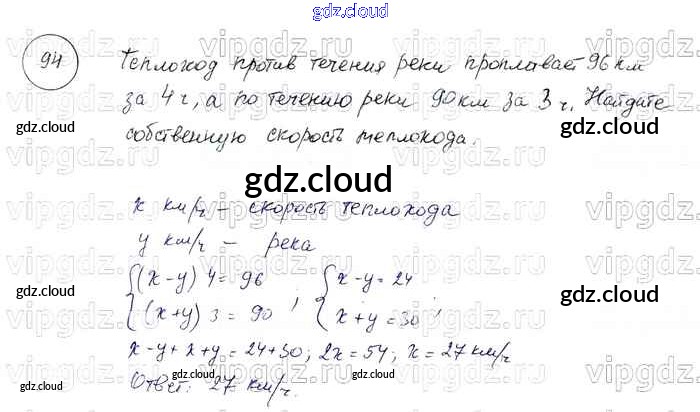 gdz.cloud
94
Теплоход против течения реки проплывает 96 км
за 4 ч, а по течению реки 90 км за 3 ч. Найдите
собственную скорость теплохода.
gdz.cloud
x км/ч – скорость теплохода
y км/ч – река
{(x-y) 4 = 96 ; {x-y = 24
{(x+y) 3 = 90 {x+y = 30 ;
x-y+x+y = 24+30; 2x = 54; x = 27 км/ч
Ответ: 27 км/ч.
gdz.cloud
gdz.cloud
gdz.cloud
gdz.cloud
gdz.cloud
gdz.cloud
vipgdz.ru